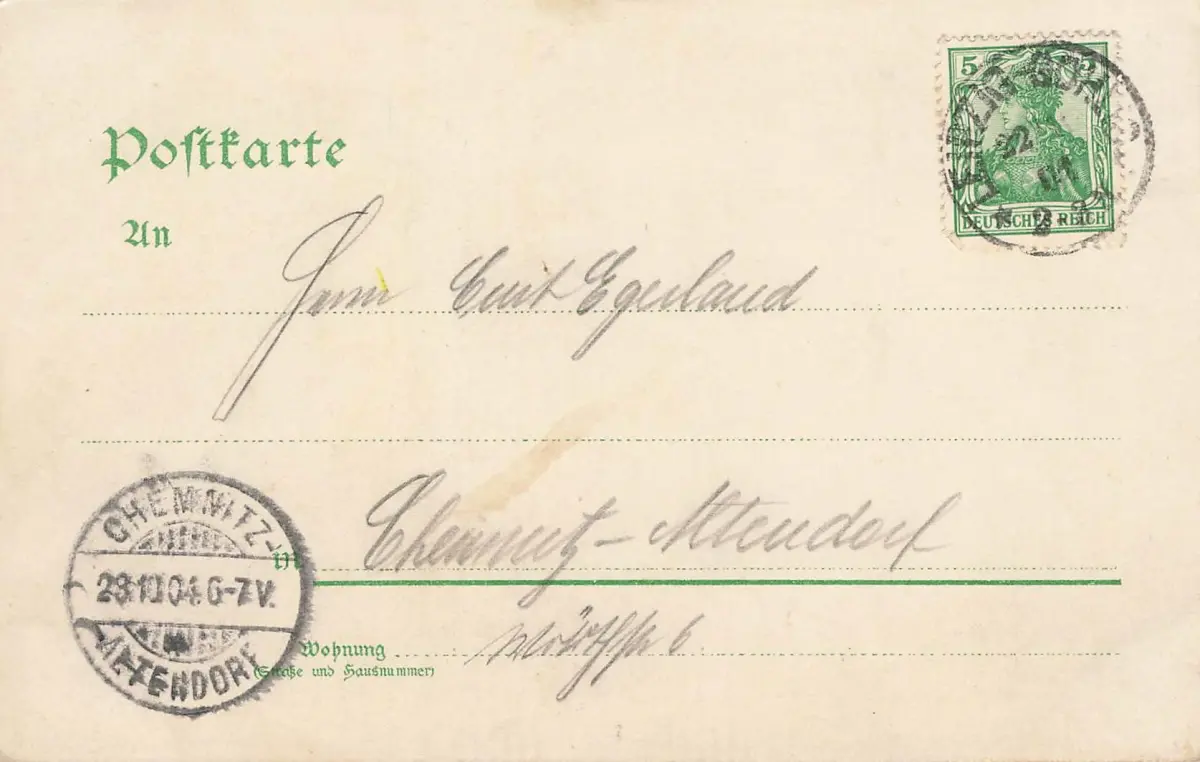 Postkarte
5 5
DEUTSCHES REICH
LEIPZIG-
22
An
Herrn Curt Egerland
CHEMNITZ-
23.10.04.6-7V.
ALTENDORF
in Chemnitz-Altendorf
Wohnung
6
(Straße und Hausnummer)